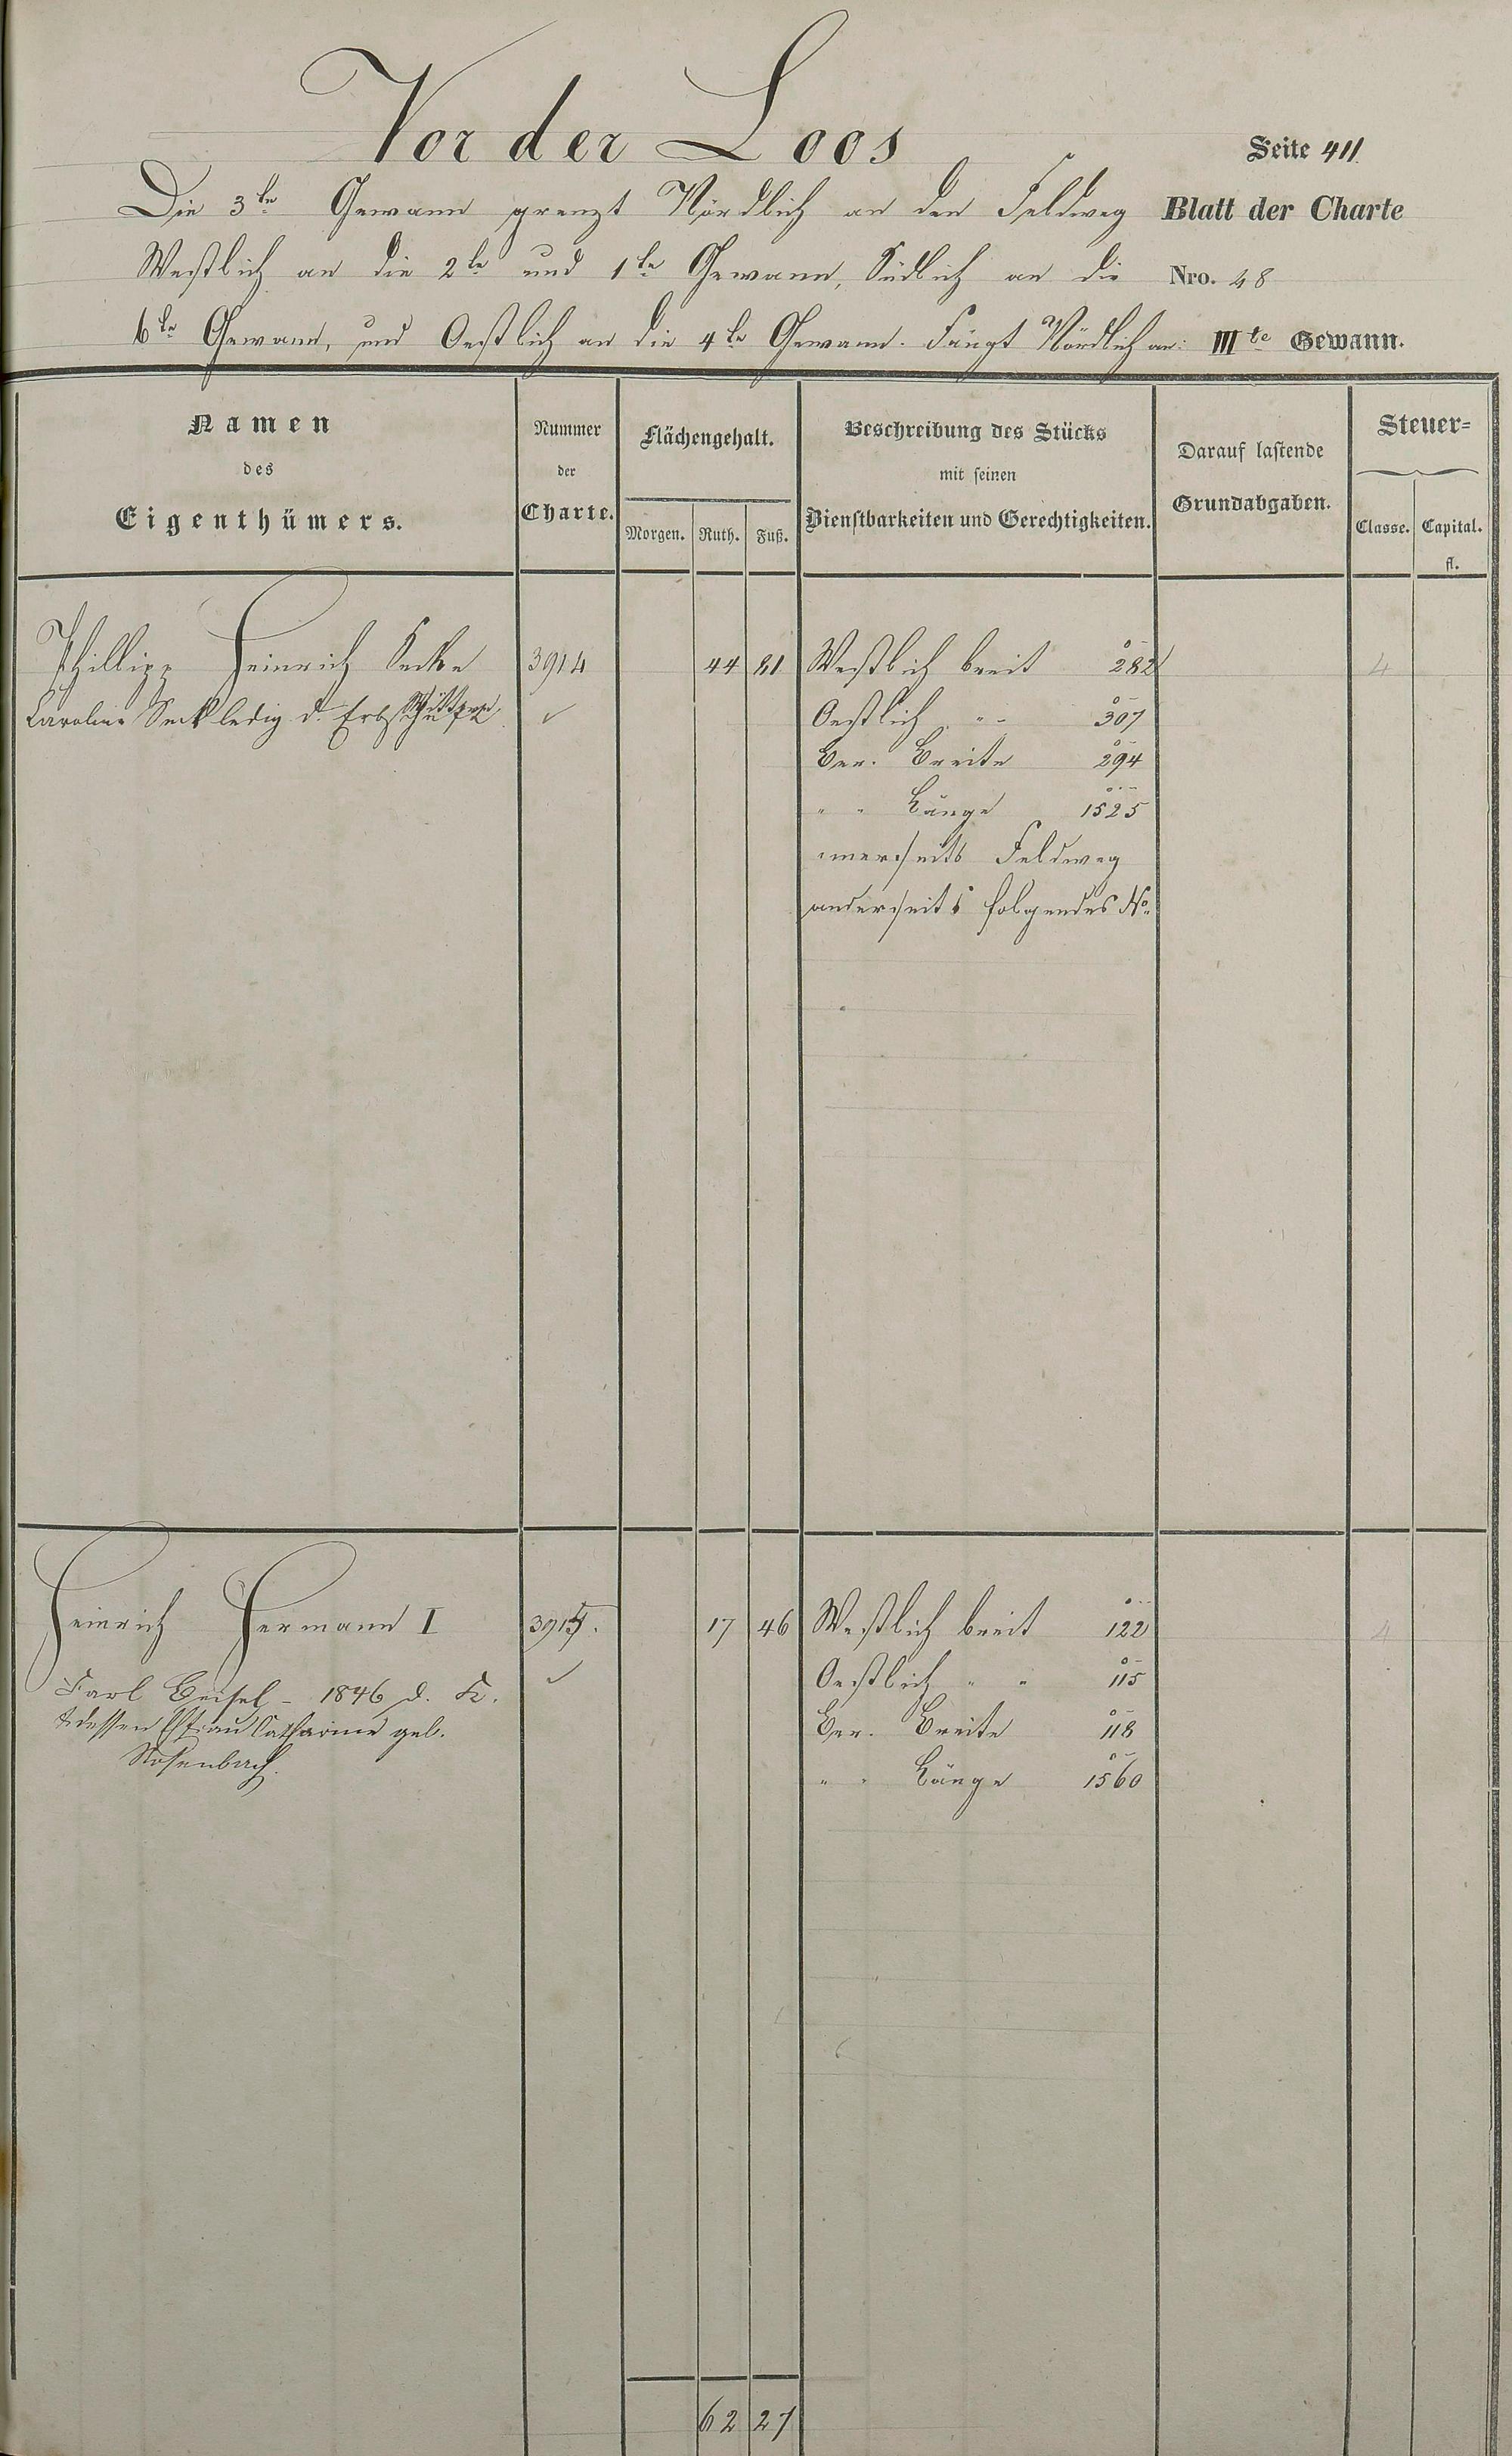 Vor der Loos
Seite 411.
Die 3te Gewann grenzt Nördlich an den Feldweg
Blatt der Charte
Westlich an die 2te und 1te Gewann, Südlich an die
Nro. 48
6te Gewann, und Oestlich an die 4te Gewann. Fängt Nördlich an:
IIIte Gewann.
Namen
des
Eigenthümers.
Nummer
der
Charte.
Flächengehalt.
Morgen. Ruth. Fuß.
Beschreibung des Stücks
mit seinen
Dienstbarkeiten und Gerechtigkeiten.
Darauf lastende
Grundabgaben.
Steuer=
Classe. Capital.
fl.
Phillipp Heinrich 3914 44 81 Westlich breit 282 4
Caroline Seck ledig d. ✓ Oestlich " - 307
Ber. Breite 294
" " Länge 1525
einerseits Feldweg
anderseits folgendes No.
Heinrich Hermann I 3915. 17 46 Westlich breit 122 4
Carl Beisel - 1846 d. K. ✓ Oestlich " " 115
& dessen Ehfrau Catharine geb. Ber. Breite 118
Rosenbach. " " Länge 1560
62 27